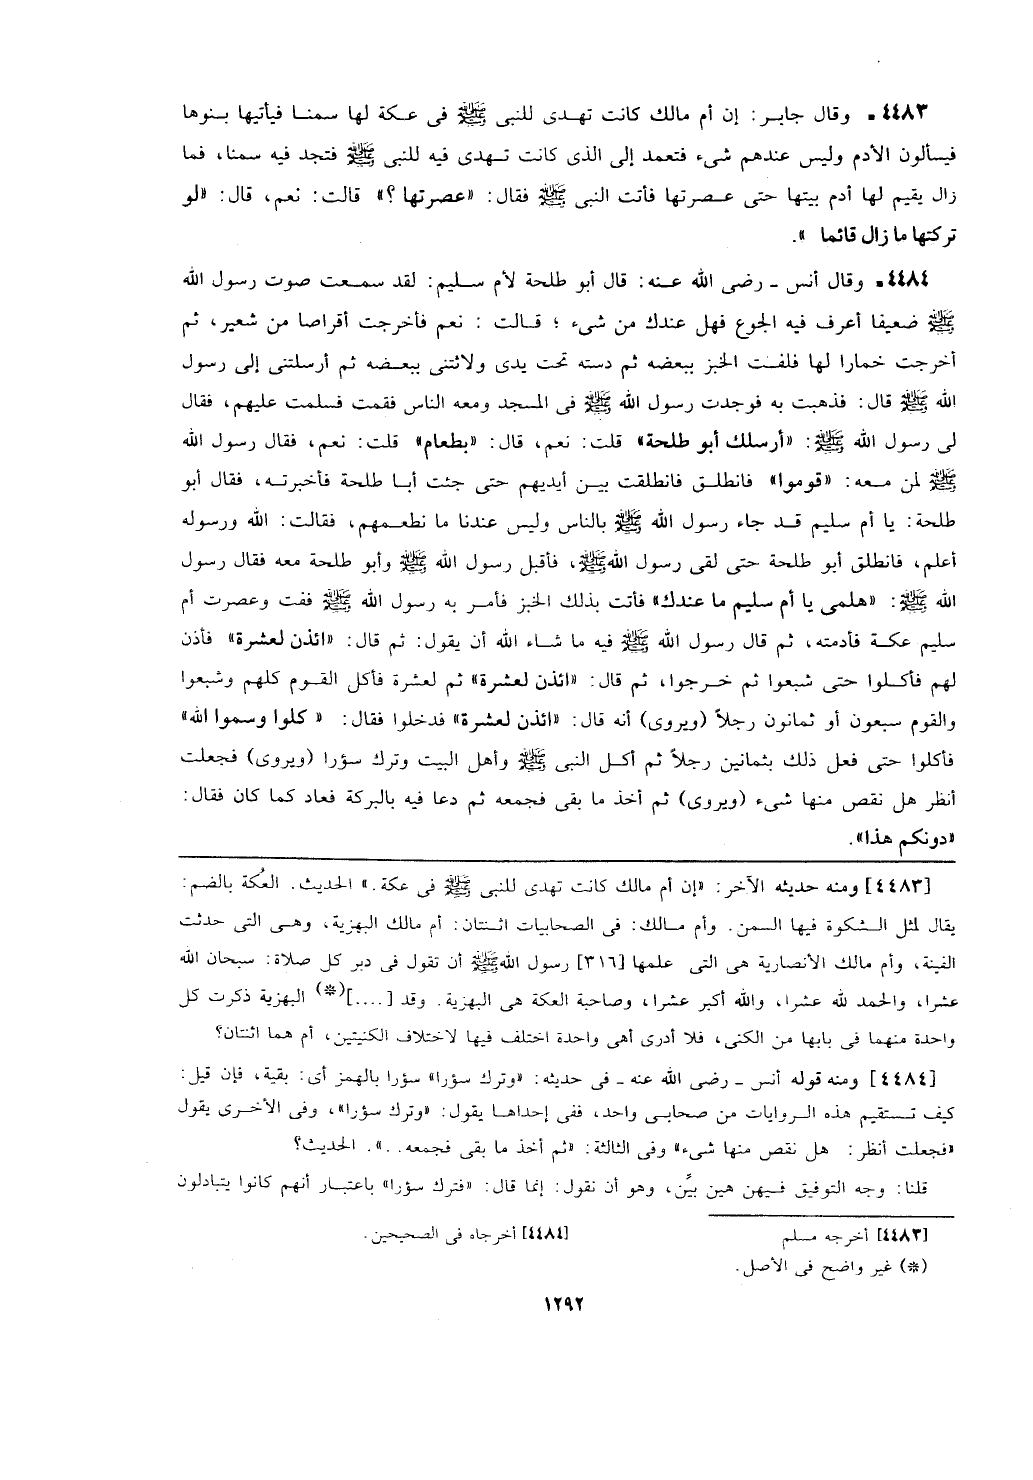 ٤٤٨٣. وقال جابر: إن أم مالك كانت تهدى للنبى ﷺ فى عكة لها سمنا فيأتيها بنوها
فيسألون الأدم وليس عندهم شىء فتعمد إلى الذى كانت تهدى فيه للنبى ﷺ فتجد فيه سمنا، فما
زال يقيم لها أدم بيتها حتى عصرتها فأتت النبى ﷺ فقال: «عصرتها ؟» قالت: نعم، قال: «لو
تركتها ما زال قائما ».
٤٤٨٤. وقال أنس ـ رضى الله عنه: قال أبو طلحة لأم سليم: لقد سمعت صوت رسول الله
ﷺ ضعيفا أعرف فيه الجوع فهل عندك من شىء ؛ قالت : نعم فأخرجت أقراصا من شعير، ثم
أخرجت خمارا لها فلفت الخبز ببعضه ثم دسته تحت يدى ولاثتنى ببعضه ثم أرسلتنى إلى رسول
الله ﷺ قال: فذهبت به فوجدت رسول الله ﷺ فى المسجد ومعه الناس فقمت فسلمت عليهم، فقال
لى رسول الله ﷺ: «أرسلك أبو طلحة» قلت: نعم، قال: «بطعام» قلت: نعم، فقال رسول الله
ﷺ لمن معه: «قوموا» فانطلق فانطلقت بين أيديهم حتى جئت أبا طلحة فأخبرته، فقال أبو
طلحة: يا أم سليم قد جاء رسول الله ﷺ بالناس وليس عندنا ما نطعمهم، فقالت: الله ورسوله
أعلم، فانطلق أبو طلحة حتى لقى رسول اللهﷺ، فأقبل رسول الله ﷺ وأبو طلحة معه فقال رسول
الله ﷺ: «هلمى يا أم سليم ما عندك» فأتت بذلك الخبز فأمر به رسول الله ﷺ ففت وعصرت أم
سليم عكة فأدمته، ثم قال رسول الله ﷺ فيه ما شاء الله أن يقول: ثم قال: «ائذن لعشرة» فأذن
لهم فأكلوا حتى شبعوا ثم خرجوا، ثم قال: «ائذن لعشرة» ثم لعشرة فأكل القوم كلهم وشبعوا
والقوم سبعون أو ثمانون رجلاً (ويروى) أنه قال: «ائذن لعشرة» فدخلوا فقال: « كلوا وسموا الله»
فأكلوا حتى فعل ذلك بثمانين رجلاً ثم أكل النبى ﷺ وأهل البيت وترك سؤرا (ويروى) فجعلت
أنظر هل نقص منها شىء (ويروى) ثم أخذ ما بقى فجمعه ثم دعا فيه بالبركة فعاد كما كان فقال:
«دونكم هذا».
[٤٤٨٣] ومنه حديثه الآخر: «إن أم مالك كانت تهدى للنبى ﷺ فى عكة.» الحديث. العُكة بالضم:
يقال لمثل الشكوة فيها السمن. وأم مالك: فى الصحابيات اثنتان: أم مالك البهزية، وهى التى حدثت
الفينة، وأم مالك الأنصارية هى التى علمها [٣١٦] رسول اللهﷺ أن تقول فى دبر كل صلاة: سبحان الله
عشرا، والحمد لله عشرا، والله أكبر عشرا، وصاحبة العكة هى البهزية. وقد [....](*) البهزية ذكرت كل
واحدة منهما فى بابها من الكنى، فلا أدرى أهى واحدة اختلف فيها لاختلاف الكنيتين، أم هما اثنتان؟
[٤٤٨٤] ومنه قوله أنس ـ رضى الله عنه ـ فى حديثه: «وترك سؤرا» سؤرا بالهمز أى: بقية، فإن قيل:
كيف تستقيم هذه الروايات من صحابى واحد، ففى إحداها يقول: «وترك سؤرا»، وفى الأخرى يقول
«فجعلت أنظر: هل نقص منها شىء» وفى الثالثة: «ثم أخذ ما بقى فجمعه..». الحديث؟
قلنا: وجه التوفيق فيهن هين بيِّن، وهو أن نقول: إنما قال: «فترك سؤرا» باعتبار أنهم كانوا يتبادلون
[٤٤٨٣] أخرجه مسلم
[٤٤٨٤] أخرجاه فى الصحيحين.
(*) غير واضح فى الأصل.
١٢٩٢